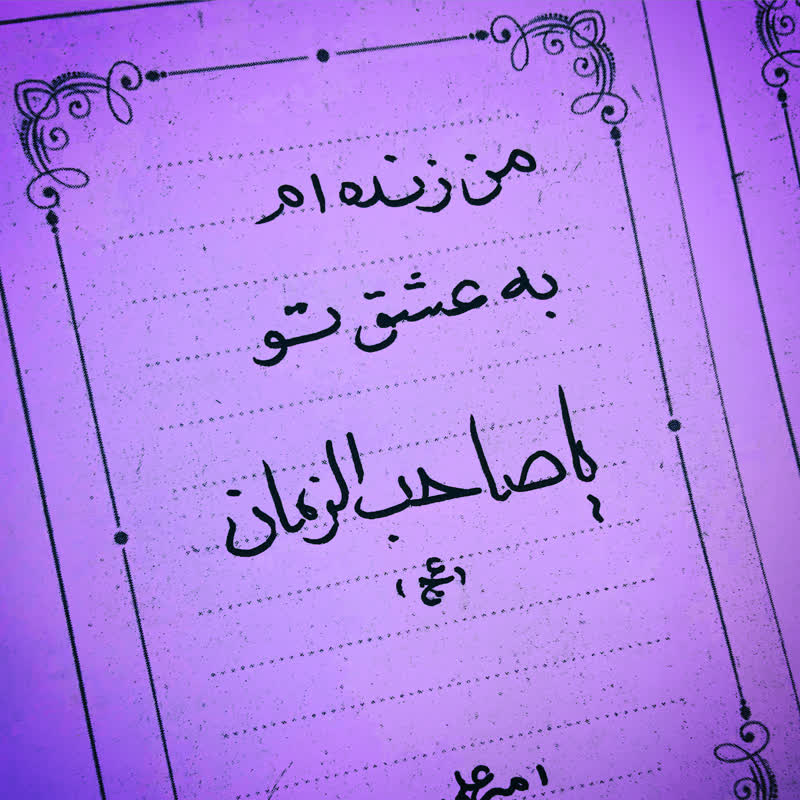 من زنده ام
به عشق تو
یا صاحب الزمان
(عج)